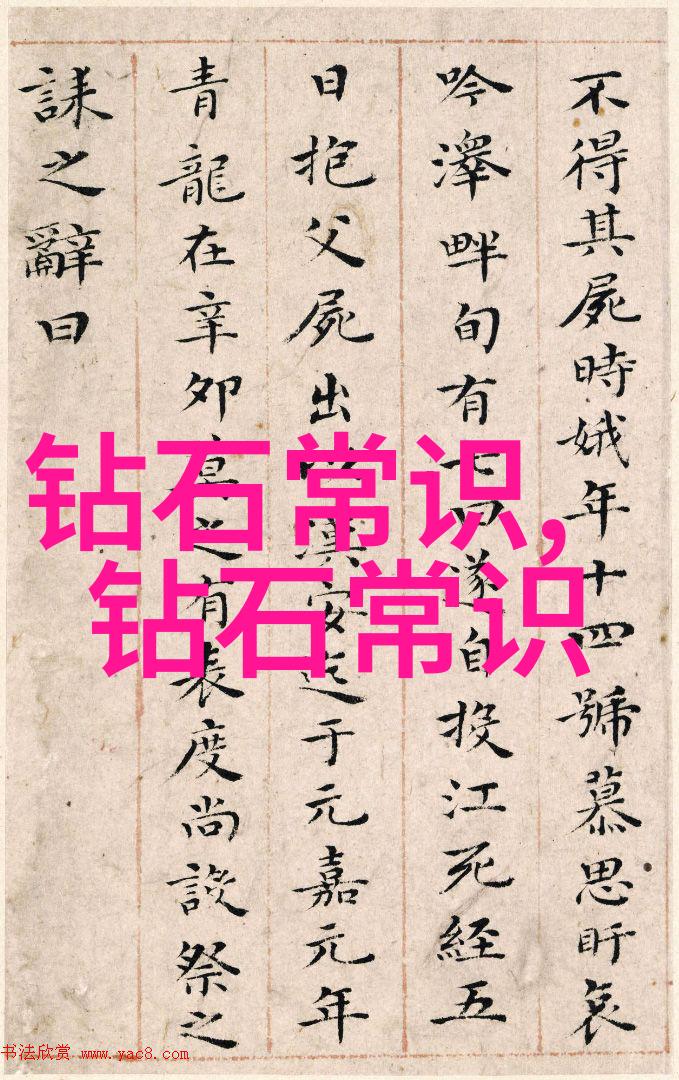 不得其屍時娥年十四號慕思盱哀
吟澤畔旬有七日遂自投江死經五
日抱父屍出以漢安迄于元嘉元年
青龍在辛卯莫之有表度尚設祭之
誄之辭曰
钻石常识,
钻石常识
书法欣赏 www.yac8.com